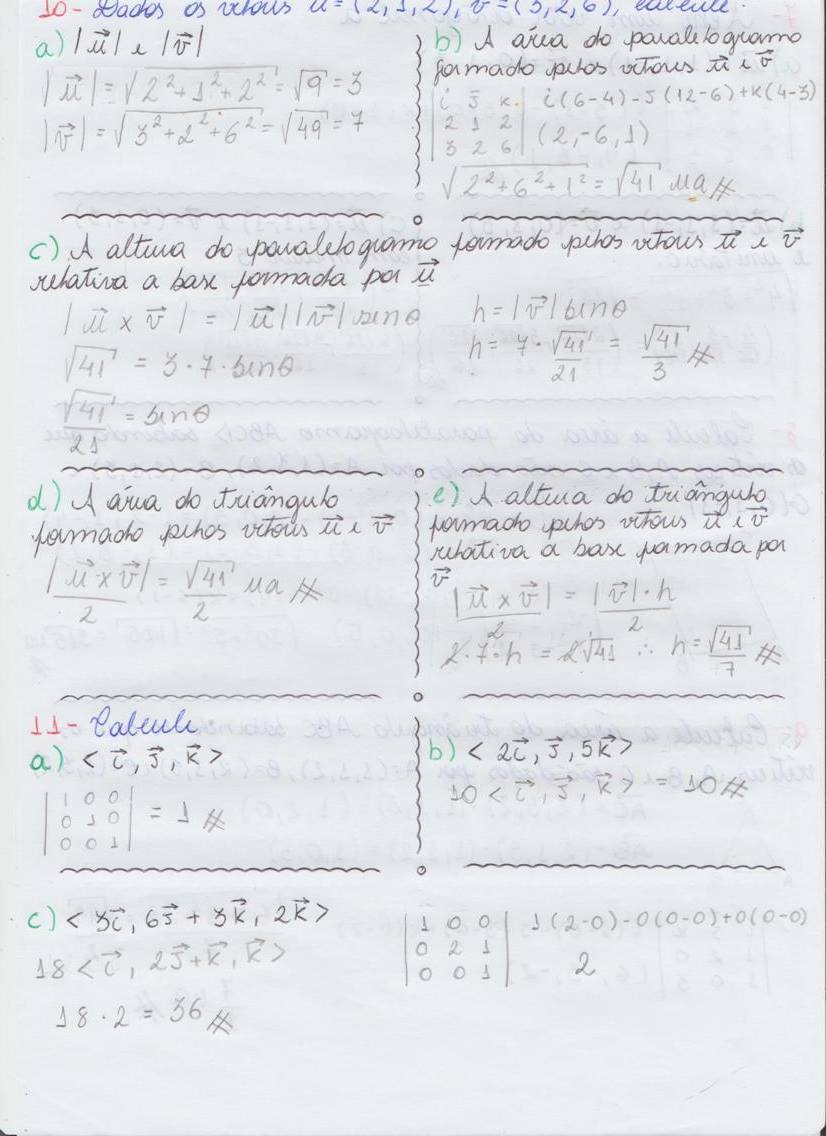 10- Dados os vetores u⃗ = (2,1,2), v⃗ = (3,2,6), calcule:
a) |u⃗| e |v⃗|
|u⃗| = √2²+1²+2² = √9 = 3
|v⃗| = √3²+2²+6² = √49 = 7
b) A área do paralelogramo
formado pelos vetores u⃗ e v⃗
|i J k| i(6-4)-J(12-6)+k(4-3)
|2 1 2| (2,-6,1)
|3 2 6|
√2²+6²+1² = √41 ua #
c) A altura do paralelogramo formado pelos vetores u⃗ e v⃗
relativa a base formada por u⃗
|u⃗ x v⃗| = |u⃗||v⃗| senθ
√41 = 3·7·senθ
√41/21 = senθ
h = |v⃗| senθ
h = 7·√41/21 = √41/3 #
d) A área do triângulo
formado pelos vetores u⃗ e v⃗
|u⃗ x v⃗|/2 = √41/2 ua #
e) A altura do triângulo
formado pelos vetores u⃗ e v⃗
relativa a base formada por
v⃗
|u⃗ x v⃗|/2 = |v⃗|·h/2
2·7·h = 2√41 ∴ h = √41/7 #
11- Calcule
a) < i⃗, J⃗, k⃗ >
|1 0 0|
|0 1 0| = 1 #
|0 0 1|
b) < 2i⃗, J⃗, 5k⃗ >
10 < i⃗, J⃗, k⃗ > = 10 #
c) < 3i⃗, 6J⃗ + 3k⃗, 2k⃗ >
18 < i⃗, 2J⃗+k⃗, k⃗ >
18·2 = 36 #
|1 0 0| 1(2-0)-0(0-0)+0(0-0)
|0 2 1| 2
|0 0 1|